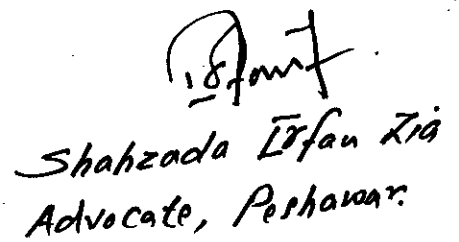 Shahzada Irfan Zia
Advocate, Peshawar.